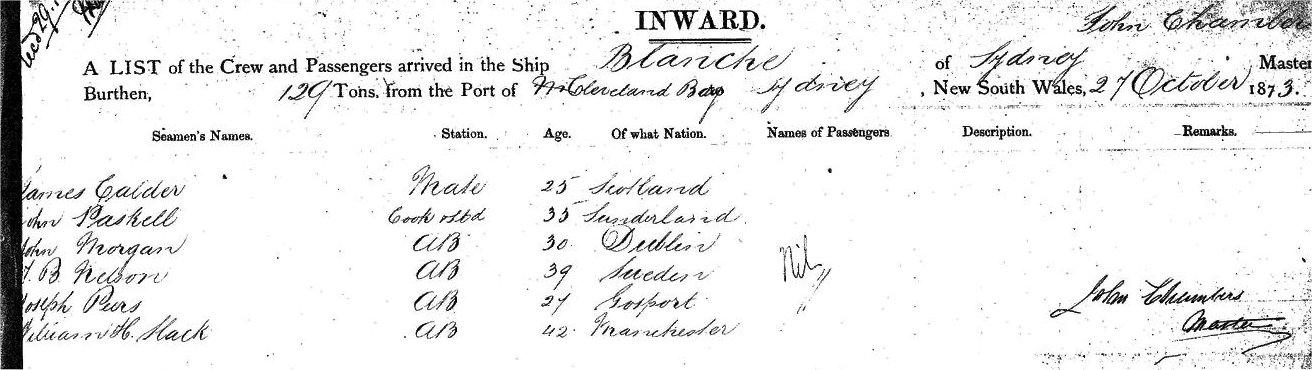 INWARD.
John Chambers
A LIST of the Crew and Passengers arrived in the Ship Blanche of Sydney Master
Burthen, 129 Tons. from the Port of Cleveland Bay Sydney , New South Wales, 27 October 1873.
Seamen's Names. Station. Age. Of what Nation. Names of Passengers Description. Remarks.
James Calder Mate 25 Scotland
John Paskell Cook & Std 35 Sunderland
John Morgan AB 30 Dublin
B. Nelson AB 39 Sweden
Nil
Joseph Peirs AB 27 Gosport
John Chambers
William H. Mack AB 42 Manchester
Master